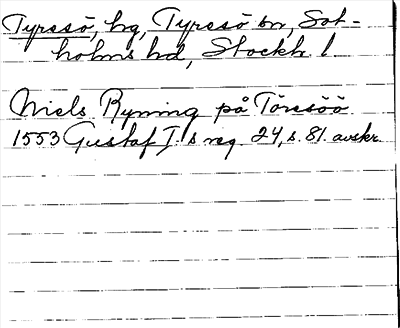 Tyresö, hg, Tyresö sn, Sot-
holms hd, Stockh l
Niels Ryning på Töresöö
1553 Gustaf I:s reg. 24, s. 81. avskr.